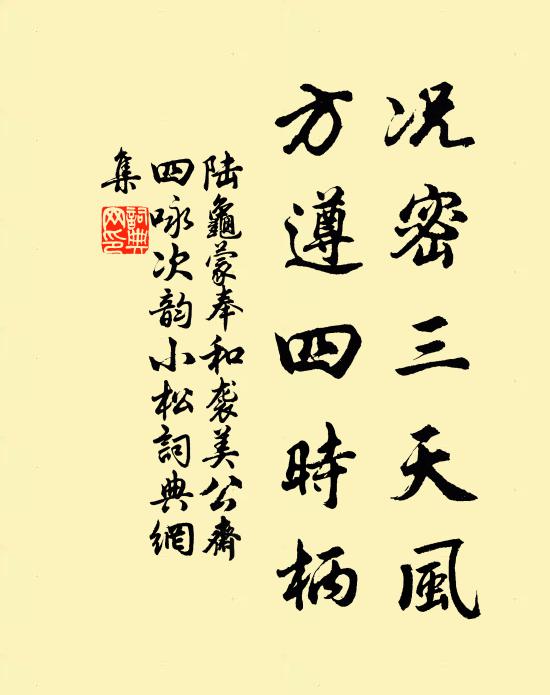 况密三天風
方遵四時柄
陸龜蒙奉和袭美公齋
四咏次韵小松詞典網
集
詞典網印